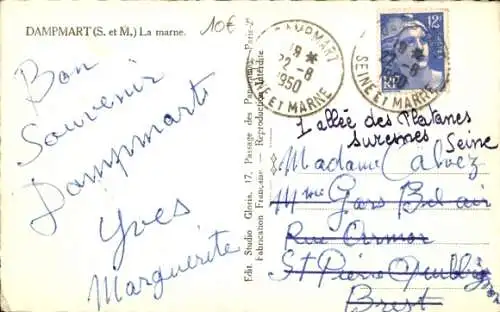 DAMPMART (S. et M.) La marne.
10€
Bon
Souvenir
Dampmart
Yves
Marguerite
Edit. Studio Gloria, 17, Passage des Panoramas, Paris
Fabrication Française - Reproduction Interdite
DAMPMART
19 *
22 - 8
1950
SEINE ET MARNE
12F
RF
DAMPMART
19 *
22 - 8
1950
SEINE ET MARNE
1 allée des Platanes
Suresnes Seine
Madame Calvez
Mme Gars Bel air
Rue Armor
St Pierre Quilbignon
Brest